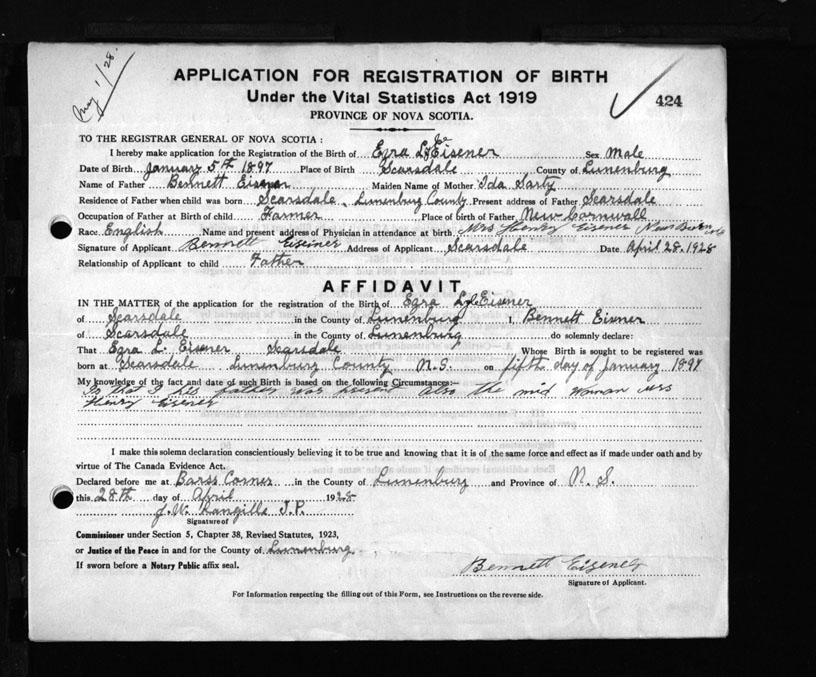 May 1/28.
APPLICATION FOR REGISTRATION OF BIRTH
Under the Vital Statistics Act 1919
424
PROVINCE OF NOVA SCOTIA.
TO THE REGISTRAR GENERAL OF NOVA SCOTIA:
I hereby make application for the Registration of the Birth of Ezra Eisener Sex Male
Date of Birth January 5th 1897 Place of Birth Scarsdale County of Lunenburg
Name of Father Bennett Eisener Maiden Name of Mother Ida Sarty
Residence of Father when child was born Scarsdale, Lunenburg County Present address of Father Scarsdale
Occupation of Father at Birth of child Farmer Place of birth of Father New Cornwall
Race English Name and present address of Physician in attendance at birth Mrs Henry Eisener New
Signature of Applicant Bennett Eiseiner Address of Applicant Scarsdale Date April 28, 1928
Relationship of Applicant to child Father
AFFIDAVIT
IN THE MATTER of the application for the registration of the Birth of Ezra Eisener
of Scarsdale in the County of Lunenburg I, Bennett Eisner
of Scarsdale in the County of Lunenburg do solemnly declare:
That Ezra L. Eisener Scarsdale Whose Birth is sought to be registered was
born at Scarsdale Lunenburg County N.S. on fifth day of January 1897
My knowledge of the fact and date of such Birth is based on the following Circumstances:—
Is that I his father was present also the mid woman Mrs
Henry Eisener
I make this solemn declaration conscientiously believing it to be true and knowing that it is of the same force and effect as if made under oath and by
virtue of The Canada Evidence Act.
Declared before me at Barss Corner in the County of Lunenburg and Province of N. S.
this 28th day of April 1928
J.W. J.P.
Signature of
Commissioner under Section 5, Chapter 38, Revised Statutes, 1923,
or Justice of the Peace in and for the County of Lunenburg
If sworn before a Notary Public affix seal.
Bennett Eisener
Signature of Applicant.
For Information respecting the filling out of this Form, see Instructions on the reverse side.